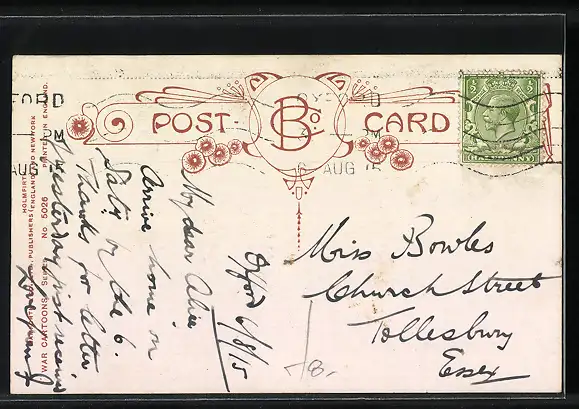 POST
B&Co.
CARD
FORD
OXFORD
M
PM
AUG
6 AUG 15
HOLMFIRTH
PUBLISHERS (ENGLAND) AND NEW YORK
WAR CARTOONS SERIES No 5026 PRINTED IN ENGLAND.
Oxford 6/8/15
My dear Alice
Arrive home on
Saty
Thanks for letter
yesterday just received
Miss Bowles
Church Street
Tollesbury
Essex
/8.